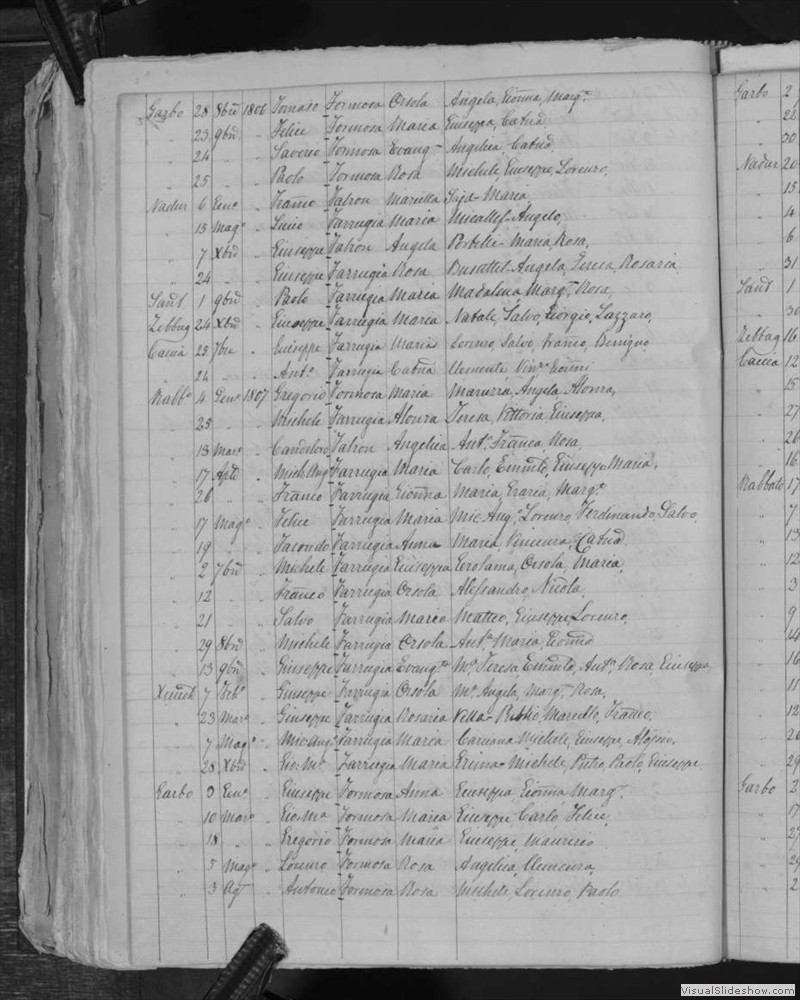 Garbo 28 8bre 1806 Tomaso Formosa Orsola Angela, Gionna, Marga
" 23 9bre " Felice Formosa Maria Giuseppa, Catna
" 24 " " Saverio Formosa Evanga Angelica Catna
" 25 " " Paolo Formosa Rosa Michele, Giuseppe, Lorenzo,
Nadur 6 Geno " Franco Fatron Mariella Sajd-Maria
" 15 Mago " Farrugia Maria Micallef-Angelo,
" 7 Xbre " Giuseppe Fatron Angela Portelli-Maria Rosa,
" 24 " " Giuseppe Farrugia Rosa Busuttil-Angela, Teresa, Rosaria
Sant 1 9bre " Paolo Farrugia Maria Madalena Marga Rosa,
Zebbug 24 Xbre " Giuseppe Farrugia Maria Natale, Salvo, Giorgio, Lazzaro,
Caccia 25 7bre " Giuseppe Farrugia Maria Lorenzo, Salvo, Franco, Benigno
" 24 " " Anto Farrugia Catna Clemente Vinzo Gionni
Rabbo 4 Geno 1807 Gregorio Formosa Maria Maruzza, Angela, Alonza,
" 25 " " Michele Farrugia Alonza Teresa, Vittoria, Giuseppa,
" 13 Marzo " Candeloro Fatron Angelica Anto Franca Rosa
" 17 Aple " Mich.Ang Farrugia Maria Carlo, Giuseppe Maria,
" 26 " " Franco Farrugia Gionna Maria, Grazia, Marga
" 17 Mago " Felice Farrugia Maria Mic.Ango Lorenzo, Ferdinando, Salvo,
" 19 " " Farrugia Anna Maria, Vincenza, Catna
" 2 7bre " Michele Farrugia Giuseppa Gerolama, Orsola, Maria,
" 12 " " Franco Farrugia Orsola Alessandro, Nicola,
" 21 " " Salvo Farrugia Maria Matteo, Giuseppe, Lorenzo,
" 29 8bre " Michele Farrugia Orsola Anta Maria, Gionna
" 13 9bre " Giuseppe Farrugia Evanga Ma Teresa, Anto, Rosa, Giuseppa,
7 Febo " Giuseppe Farrugia Orsola Ma Angela, Marga Rosa,
" 23 Marzo " Giuseppe Farrugia Rosaria Vella- Marcello, Franco,
" 7 Mago " Mic.Ang Farrugia Maria Caruana Michele, Giuseppe, Aloisio,
" 28 Xbre " Gio:Ma Farrugia Maria Grima-Michele, Pietro, Paolo, Giuseppe
Garbo 3 Geno " Giuseppe Formosa Anna Giuseppa, Gionna Marga
" 10 Marzo " Gio.Ma Formosa Maria Giuseppe, Carlo, Felice,
" 18 " " Gregorio Formosa Maria Giuseppe, Maurizio
" 5 Mago " Lorenzo Formosa Rosa Angelica, Clemenza,
" 3 Ago " Antonio Formosa Rosa Michele, Lorenzo, Paolo
Garbo 2
22
30
Nadur 20
15
4
6
31
Sant 1
30
Zebbug 16
Caccia 12
15
27
26
16
Rabbato 17
7
13
12
3
9
14
16
11
12
26
29
Garbo 2
17
27
29
2
VisualSlideshow.com